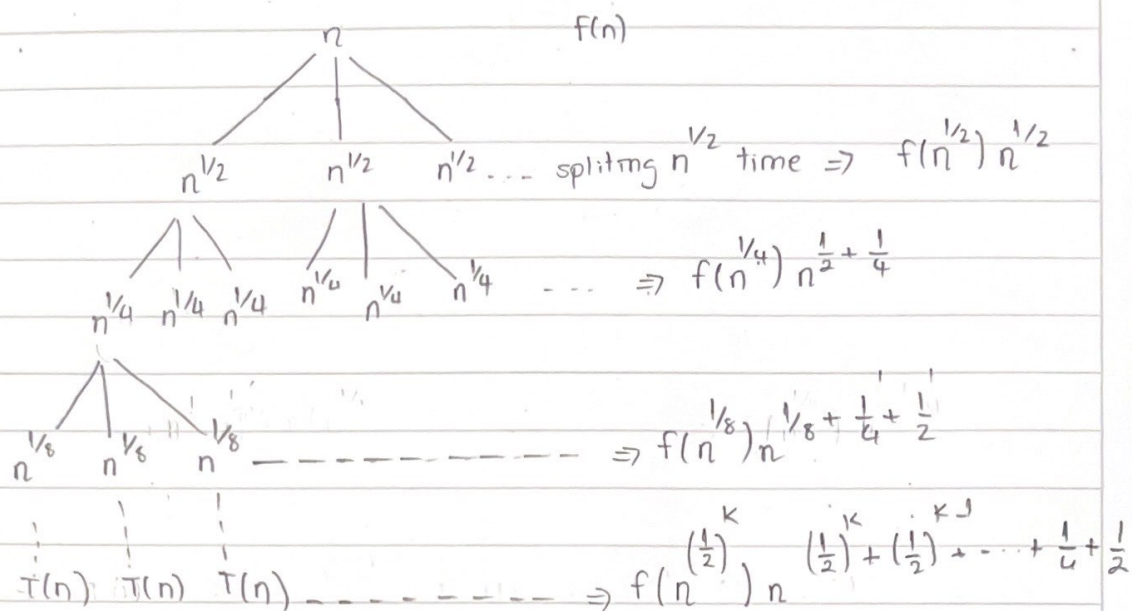 n f(n)
n^1/2 n^1/2 n^1/2 .... spliting n^1/2 time ⇒ f(n^1/2) n^1/2
n^1/4 n^1/4 n^1/4 n^1/4 n^1/4 n^1/4 .... ⇒ f(n^1/4) n^(1/2 + 1/4)
n^1/8 n^1/8 n^1/8 ------------ ⇒ f(n^1/8) n^(1/8 + 1/4 + 1/2)
T(n) T(n) T(n) -------- ⇒ f(n^(1/2)^K) n^((1/2)^K + (1/2)^K-1 + --- + 1/4 + 1/2)